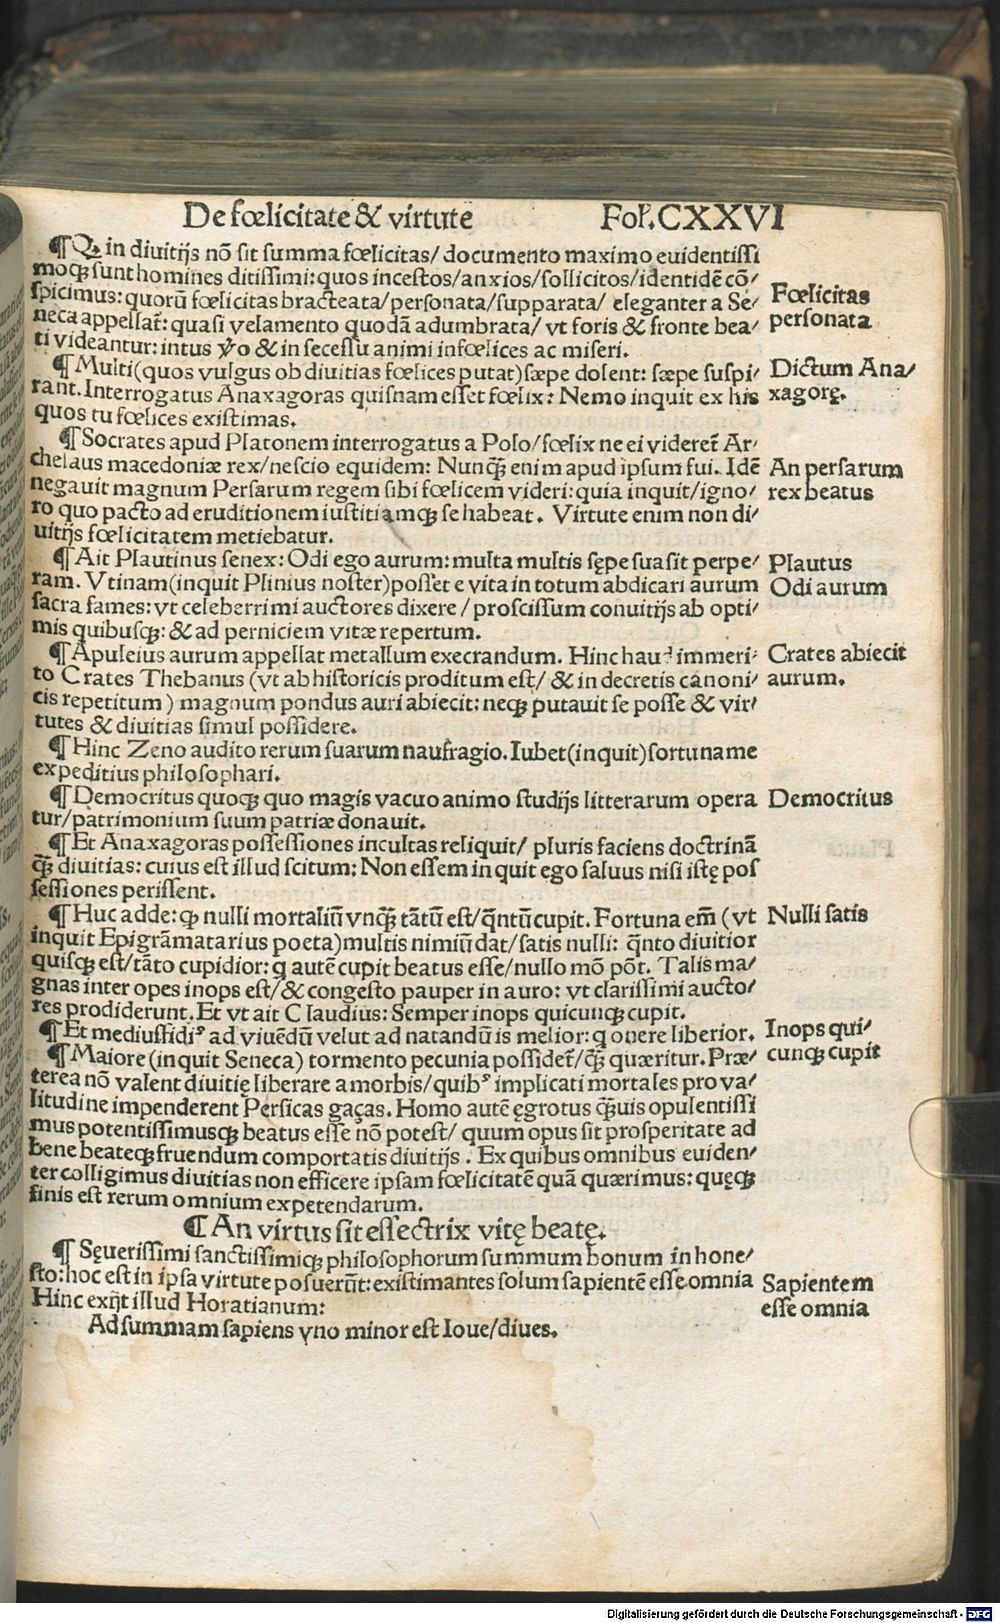 De fœlicitate & virtute Foł. CXXVI
¶ Q in diuitijs nō sit summa fœlicitas/ documento maximo euidentissi
moqꝫ sunt homines ditissimi: quos incestos/anxios/sollicitos/identidē cō/
spicimus: quorū fœlicitas bracteata/personata/supparata/ eleganter a Se/
neca appellať: quasi velamento quodā adumbrata/ vt foris & fronte bea/
ti videantur: intus v̊o & in secessu animi infœlices ac miseri.
Fœlicitas
personata
¶ Multi(quos vulgus ob diuitias fœlices putat)sæpe dolent: sæpe suspi/
rant. Interrogatus Anaxagoras quisnam esset fœlix? Nemo inquit ex his
quos tu fœlices existimas.
Dictum Ana/
xagorę.
¶ Socrates apud Platonem interrogatus a Polo/fœlix ne ei videreť Ar/
chelaus macedoniæ rex/nescio equidem: Nunqꝫ̄ enim apud ipsum fui. Idē
negauit magnum Persarum regem sibi fœlicem videri: quia inquit/igno/
ro quo pacto ad eruditionem iustitiamqꝫ se habeat. Virtute enim non di/
uitijs fœlicitatem metiebatur.
An persarum
rex beatus
¶ Ait Plautinus senex: Odi ego aurum: multa multis sępe suasit perpe/
ram. Vtinam(inquit Plinius noster)posset e vita in totum abdicari aurum
sacra fames: vt celeberrimi auctores dixere/ proscissum conuitijs ab opti/
mis quibusqꝫ: & ad perniciem vitæ repertum.
Plautus
Odi aurum
¶ Apuleius aurum appellat metallum execrandum. Hinc haud immeri/
to Crates Thebanus (vt ab historicis proditum est/ & in decretis canoni/
cis repetitum) magnum pondus auri abiecit: neqꝫ putauit se posse & vir/
tutes & diuitias simul possidere.
Crates abiecit
aurum.
¶ Hinc Zeno audito rerum suarum naufragio. Iubet(inquit)fortuna me
expeditius philosophari.
¶ Democritus quoqꝫ quo magis vacuo animo studijs litterarum opera
tur/patrimonium suum patriæ donauit.
Democritus
¶ Et Anaxagoras possessiones incultas reliquit/ pluris faciens doctrinā
qꝫ̄ diuitias: cuius est illud scitum: Non essem inquit ego saluus nisi istę pos
sessiones perissent.
¶ Huc adde: ꝙ nulli mortaliū vnqꝫ̄ tātū est/q̄ntū cupit. Fortuna em̄ (vt
inquit Epigrāmatarius poeta)multis nimiū dat/satis nulli: q̄nto diuitior
quisqꝫ est/tāto cupidior: q autē cupit beatus esse/nullo mō pōt. Talis ma/
gnas inter opes inops est/& congesto pauper in auro: vt clarissimi aucto/
res prodiderunt. Et vt ait Claudius: Semper inops quicunqꝫ cupit.
Nulli satis
¶ Et mediussidiꝰ ad viuēdū velut ad natandū is melior: q onere liberior.
¶ Maiore (inquit Seneca) tormento pecunia possideť/qꝫ̄ quæritur. Præ/
terea nō valent diuitię liberare a morbis/quibꝰ implicati mortales pro va/
litudine impenderent Persicas gaças. Homo autē ęgrotus qꝫ̄uis opulentissi
mus potentissimusqꝫ beatus esse nō potest/ quum opus sit prosperitate ad
bene beateqꝫ fruendum comportatis diuitijs. Ex quibus omnibus euiden/
ter colligimus diuitias non efficere ipsam fœlicitatē quā quærimus: quęqꝫ
finis est rerum omnium expetendarum.
Inops qui/
cunqꝫ cupit
¶ An virtus sit effectrix vitę beatę.
¶ Sęuerissimi sanctissimiqꝫ philosophorum summum bonum in hone/
sto: hoc est in ipsa virtute posuerūt: existimantes solum sapientē esse omnia
Hinc exijt illud Horatianum:
Ad summam sapiens vno minor est Ioue/diues.
Sapientem
esse omnia
Digitalisierung gefördert durch die Deutsche Forschungsgemeinschaft - DFG